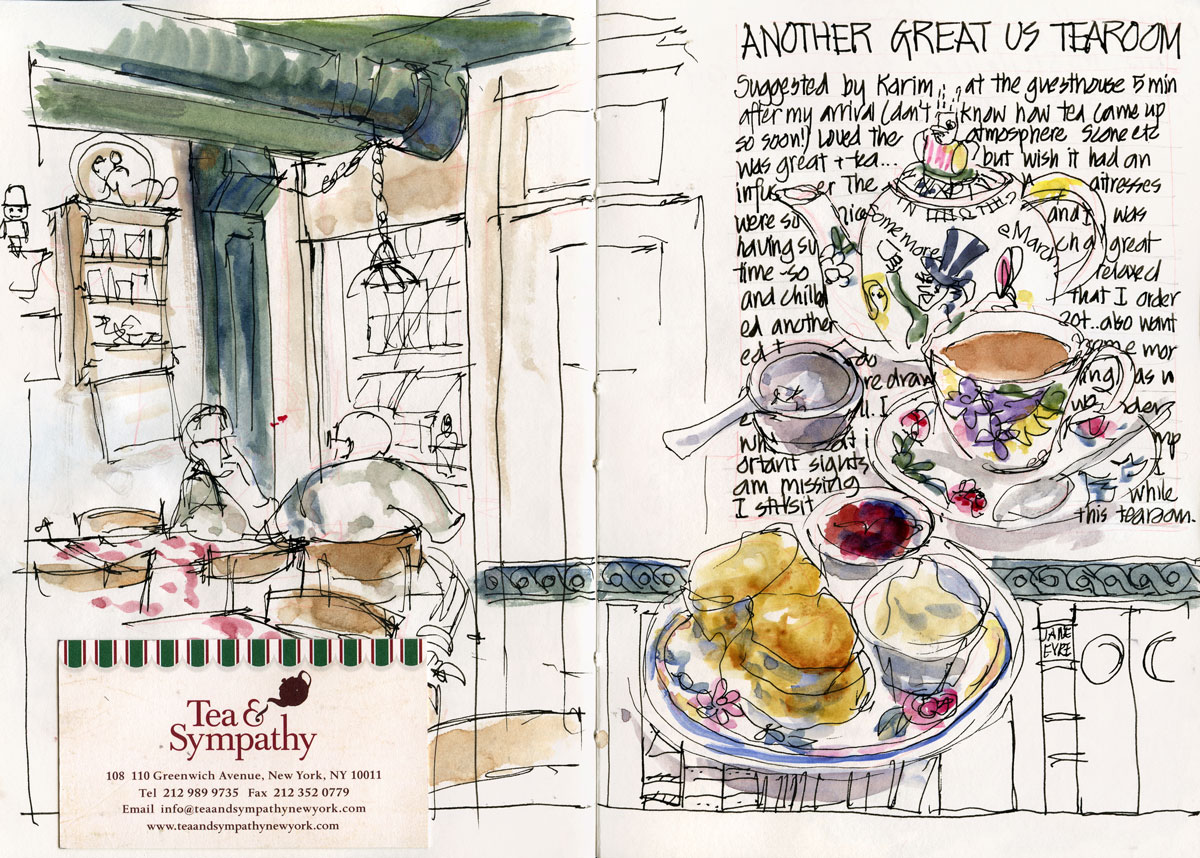 Tea &
Sympathy
108 110 Greenwich Avenue, New York, NY 10011
Tel 212 989 9735 Fax 212 352 0779
Email info@teaandsympathynewyork.com
www.teaandsympathynewyork.com
ANOTHER GREAT US TEAROOM
Suggested by Karim at the guesthouse 5 min
after my arrival (don't know how tea came up
so soon!) Loved the atmosphere Scone etc
was great + tea... but wish it had an
infus er The aitresses
were so nice and I was
having su ch a great
time - so relaxed
and chill that I order
ed another pot.. also want
ed t do some mor
re draw ing as w
u. I we nder
wh at i mp
ortant sights I
am missing while
I still sit this tearoom.
Some more
e March
JANE
EYRE